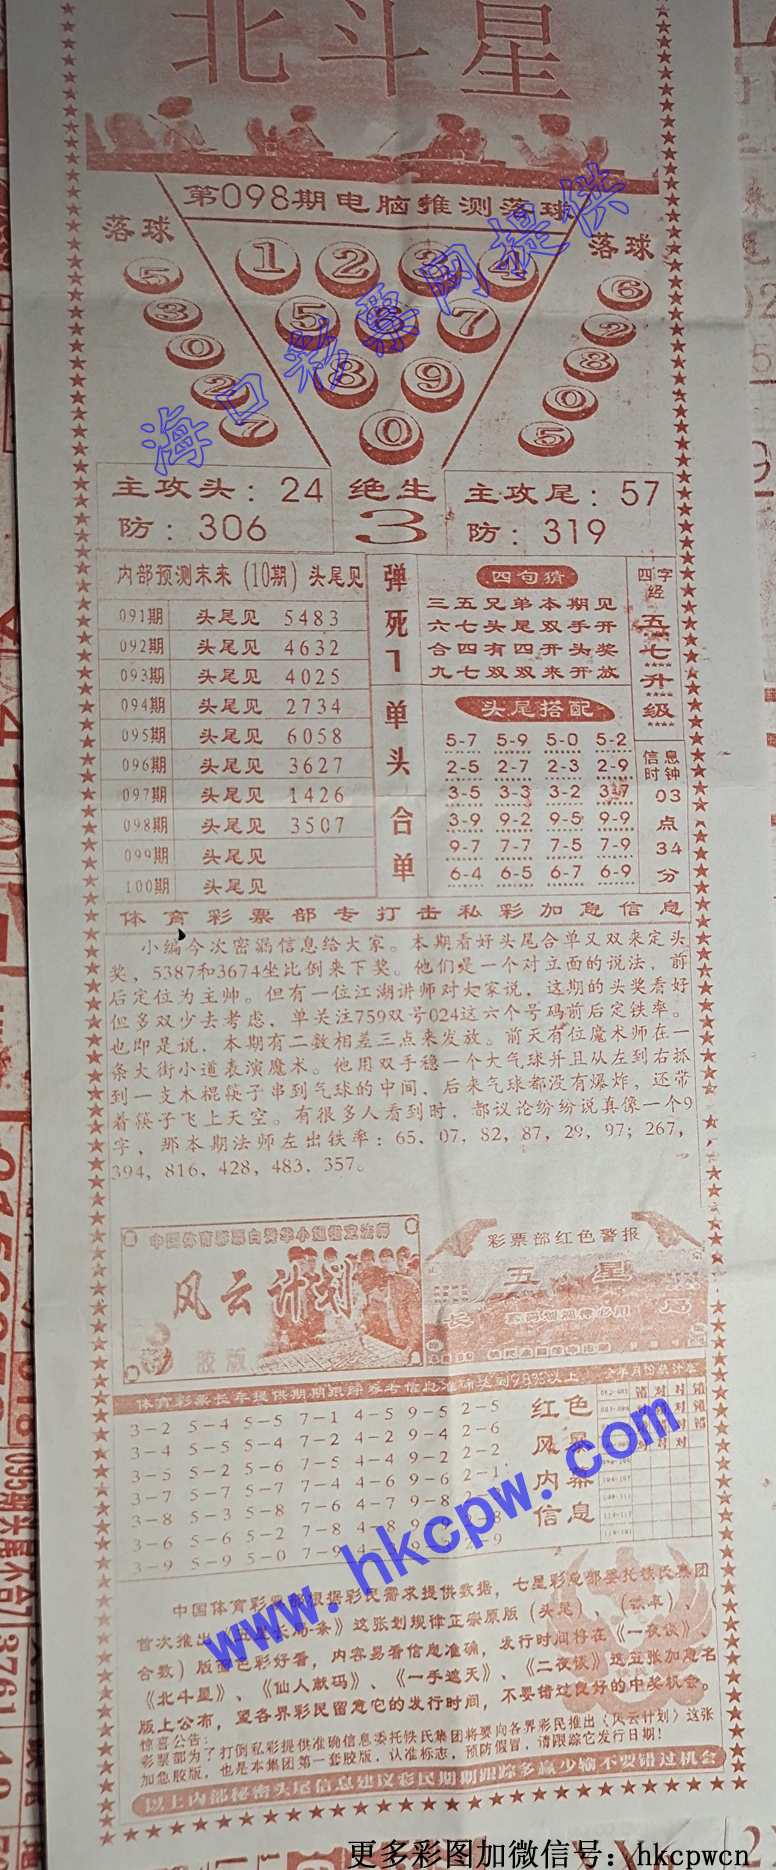 北斗星
第098期电脑推测落球
落球
落球
1 2 3 4
5 6 7
8 9
0
5
3
0
2
7
6
2
8
0
5
海口彩票网提供
主攻头：24
防：306
绝生
3
主攻尾：57
防：319
内部预测末来（10期）头尾见
091期 头尾见 5483
092期 头尾见 4632
093期 头尾见 4025
094期 头尾见 2734
095期 头尾见 6058
096期 头尾见 3627
097期 头尾见 1426
098期 头尾见 3507
099期 头尾见
100期 头尾见
弹死1单头
合单
四句猜
三五兄弟本期见
六七头尾双手开
合四有四开头奖
九七双双来开放
头尾搭配
5-7 5-9 5-0 5-2
2-5 2-7 2-3 2-9
3-5 3-3 3-2 3-7
3-9 9-2 9-5 9-9
9-7 7-7 7-5 7-9
6-4 6-5 6-7 6-9
四字经
五七升级
信息时钟
03
点
34
分
体育彩票部专打击私彩加急信息
小编今次密漏信息给大家。本期看好头尾合单又双来定头
奖，5387和3674坐比例来下奖。他们是一个对立面的说法，前
后定位为主帅。但有一位江湖讲师对大家说，这期的头奖看好
但多双少去考虑，单关注759双号024这六个号码前后定铁率。
也即是说，本期有二数相差三点来发放。前天有位魔术师在一
条大街小道表演魔术。他用双手稳一个大气球并且从左到右抓
到一支木棍筷子串到气球的中间，后来气球都没有爆炸，还带
着筷子飞上天空。有很多人看到时，都议论纷纷说真像一个9
字，那本期法师左出铁率：65，07，82，87，29，97；267，
394，816，428，483，357。
风云计划
胶版
彩票部红色警报
五星
长
局
体育彩票长年提供期期跟踪参考信息准确达到98%以上
3-2 5-4 5-5 7-1 4-5 9-5 2-5
3-4 5-5 5-4 7-2 4-2 9-4 2-6
3-5 5-2 5-6 7-5 4-4 9-2 2-2
3-7 5-7 5-7 7-4 4-6 9-6 2-1
3-8 5-3 5-8 7-6 4-7 9-8
3-6 5-6 5-2 7-8 4-8
3-9 5-9 5-0 7-9
红色
风暴
内幕
信息
错 对 对 错
www.hkcpw.com
中国体育彩票部根据彩民需求提供数据，七星彩总部委托铁氏集团
首次推出《五星长局条》这张划规律正宗原版（头尾）、
合数）版面色彩好看，内容易看信息准确，发行时间将在《一夜谈》、
《北斗星》、《仙人献码》、《一手遮天》、《二夜谈》这五张加急名
版上公布，望各界彩民留意它的发行时间，不要错过良好的中奖机会。
惊喜公告：
彩票部为了打倒私彩提供准确信息委托铁氏集团将要向各界彩民推出《风云计划》这张
加急胶版，也是本集团第一套胶版，认准标志，预防假冒，请跟踪它发行日期！
以上内部秘密头尾信息建议彩民期期跟踪多赢少输不要错过机会
更多彩图加微信号：hkcpwcn